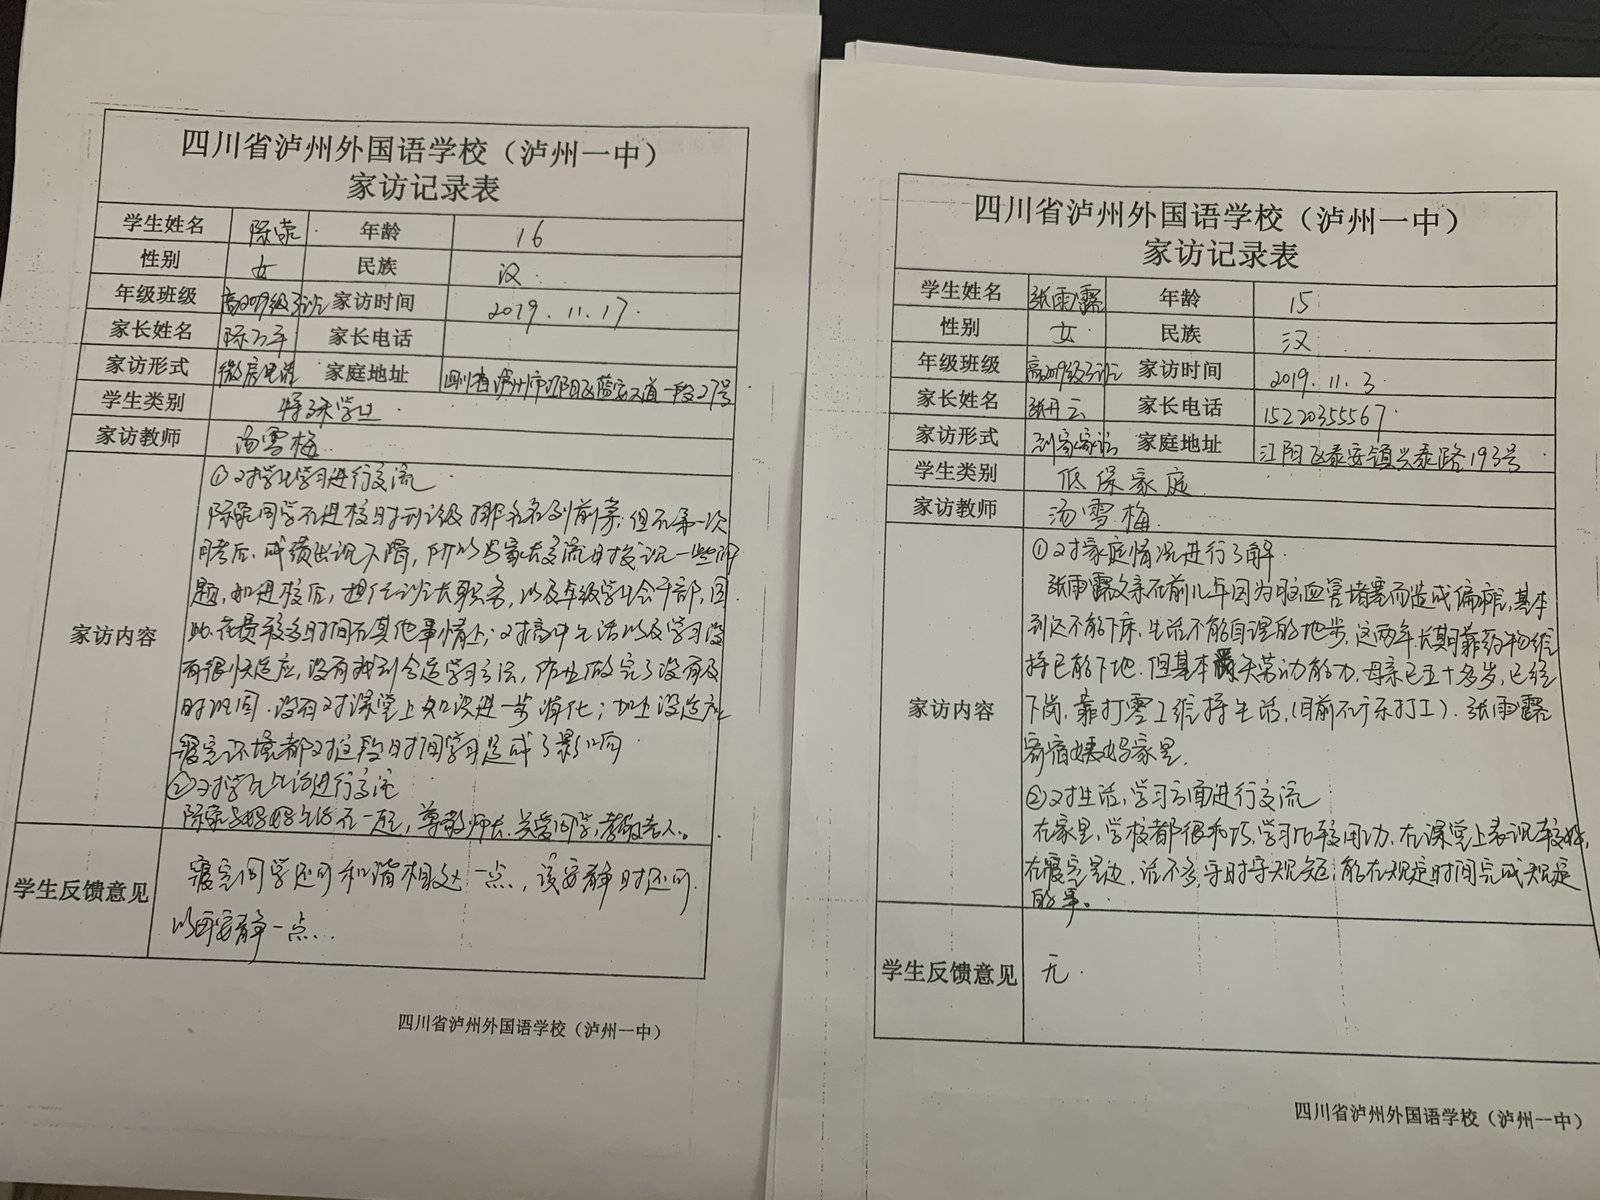 四川省泸州外国语学校（泸州一中）
家访记录表
学生姓名 陈荣 年龄 16
性别 女 民族 汉
年级班级 高2019级3班 家访时间 2019.11.17.
家长姓名 陈万平 家长电话
家访形式 微信电话 家庭地址 四川省泸州市江阳区蓝安大道一段27号
学生类别 特殊学生
家访教师 汤雪梅
家访内容
①对学生学习进行交流
陈荣同学在进校时在班级排名在列前茅，但在第一次
月考后，成绩出现下滑，所以与家长交流时发现一些问
题，如进校后，担任班长职务，以及年级学生会干部，因
此，花费较多时间在其他事情上；对高中生活以及学习没
有很快适应，没有找到合适学习方法，作业做完了没有及
时巩固，没有对课堂上知识进一步消化；加上没适应
寝室环境都对这段时间学习造成了影响
②对学生生活进行交流
陈荣与妈妈生活在一起，尊敬师长，关爱同学，孝敬老人。
学生反馈意见
寝室同学还可和谐相处一点，该安静时还可
以再安静一点...
四川省泸州外国语学校（泸州一中）
四川省泸州外国语学校（泸州一中）
家访记录表
学生姓名 张雨露 年龄 15
性别 女 民族 汉
年级班级 高2019级3班 家访时间 2019.11.3
家长姓名 张升云 家长电话 15220355567
家访形式 到家家访 家庭地址 江阳区泰安镇兴泰路193号
学生类别 低保家庭
家访教师 汤雪梅
家访内容
①对家庭情况进行了解
张雨露父亲在前几年因为脑血管堵塞而造成偏瘫，基本
到达不能下床，生活不能自理的地步，这两年长期靠药物维
持已能下地，但基本丧失劳动能力，母亲已五十多岁，已经
下岗，靠打零工维持生活，（目前在广东打工）．张雨露
寄宿姨妈家里．
②对生活，学习方面进行交流
在家里，学校都很乖巧，学习比较用功，在课堂上表现较好，
在寝室里边，话不多，守时守规矩；能在规定时间完成规定
的事。
学生反馈意见 无.
四川省泸州外国语学校（泸州一中）